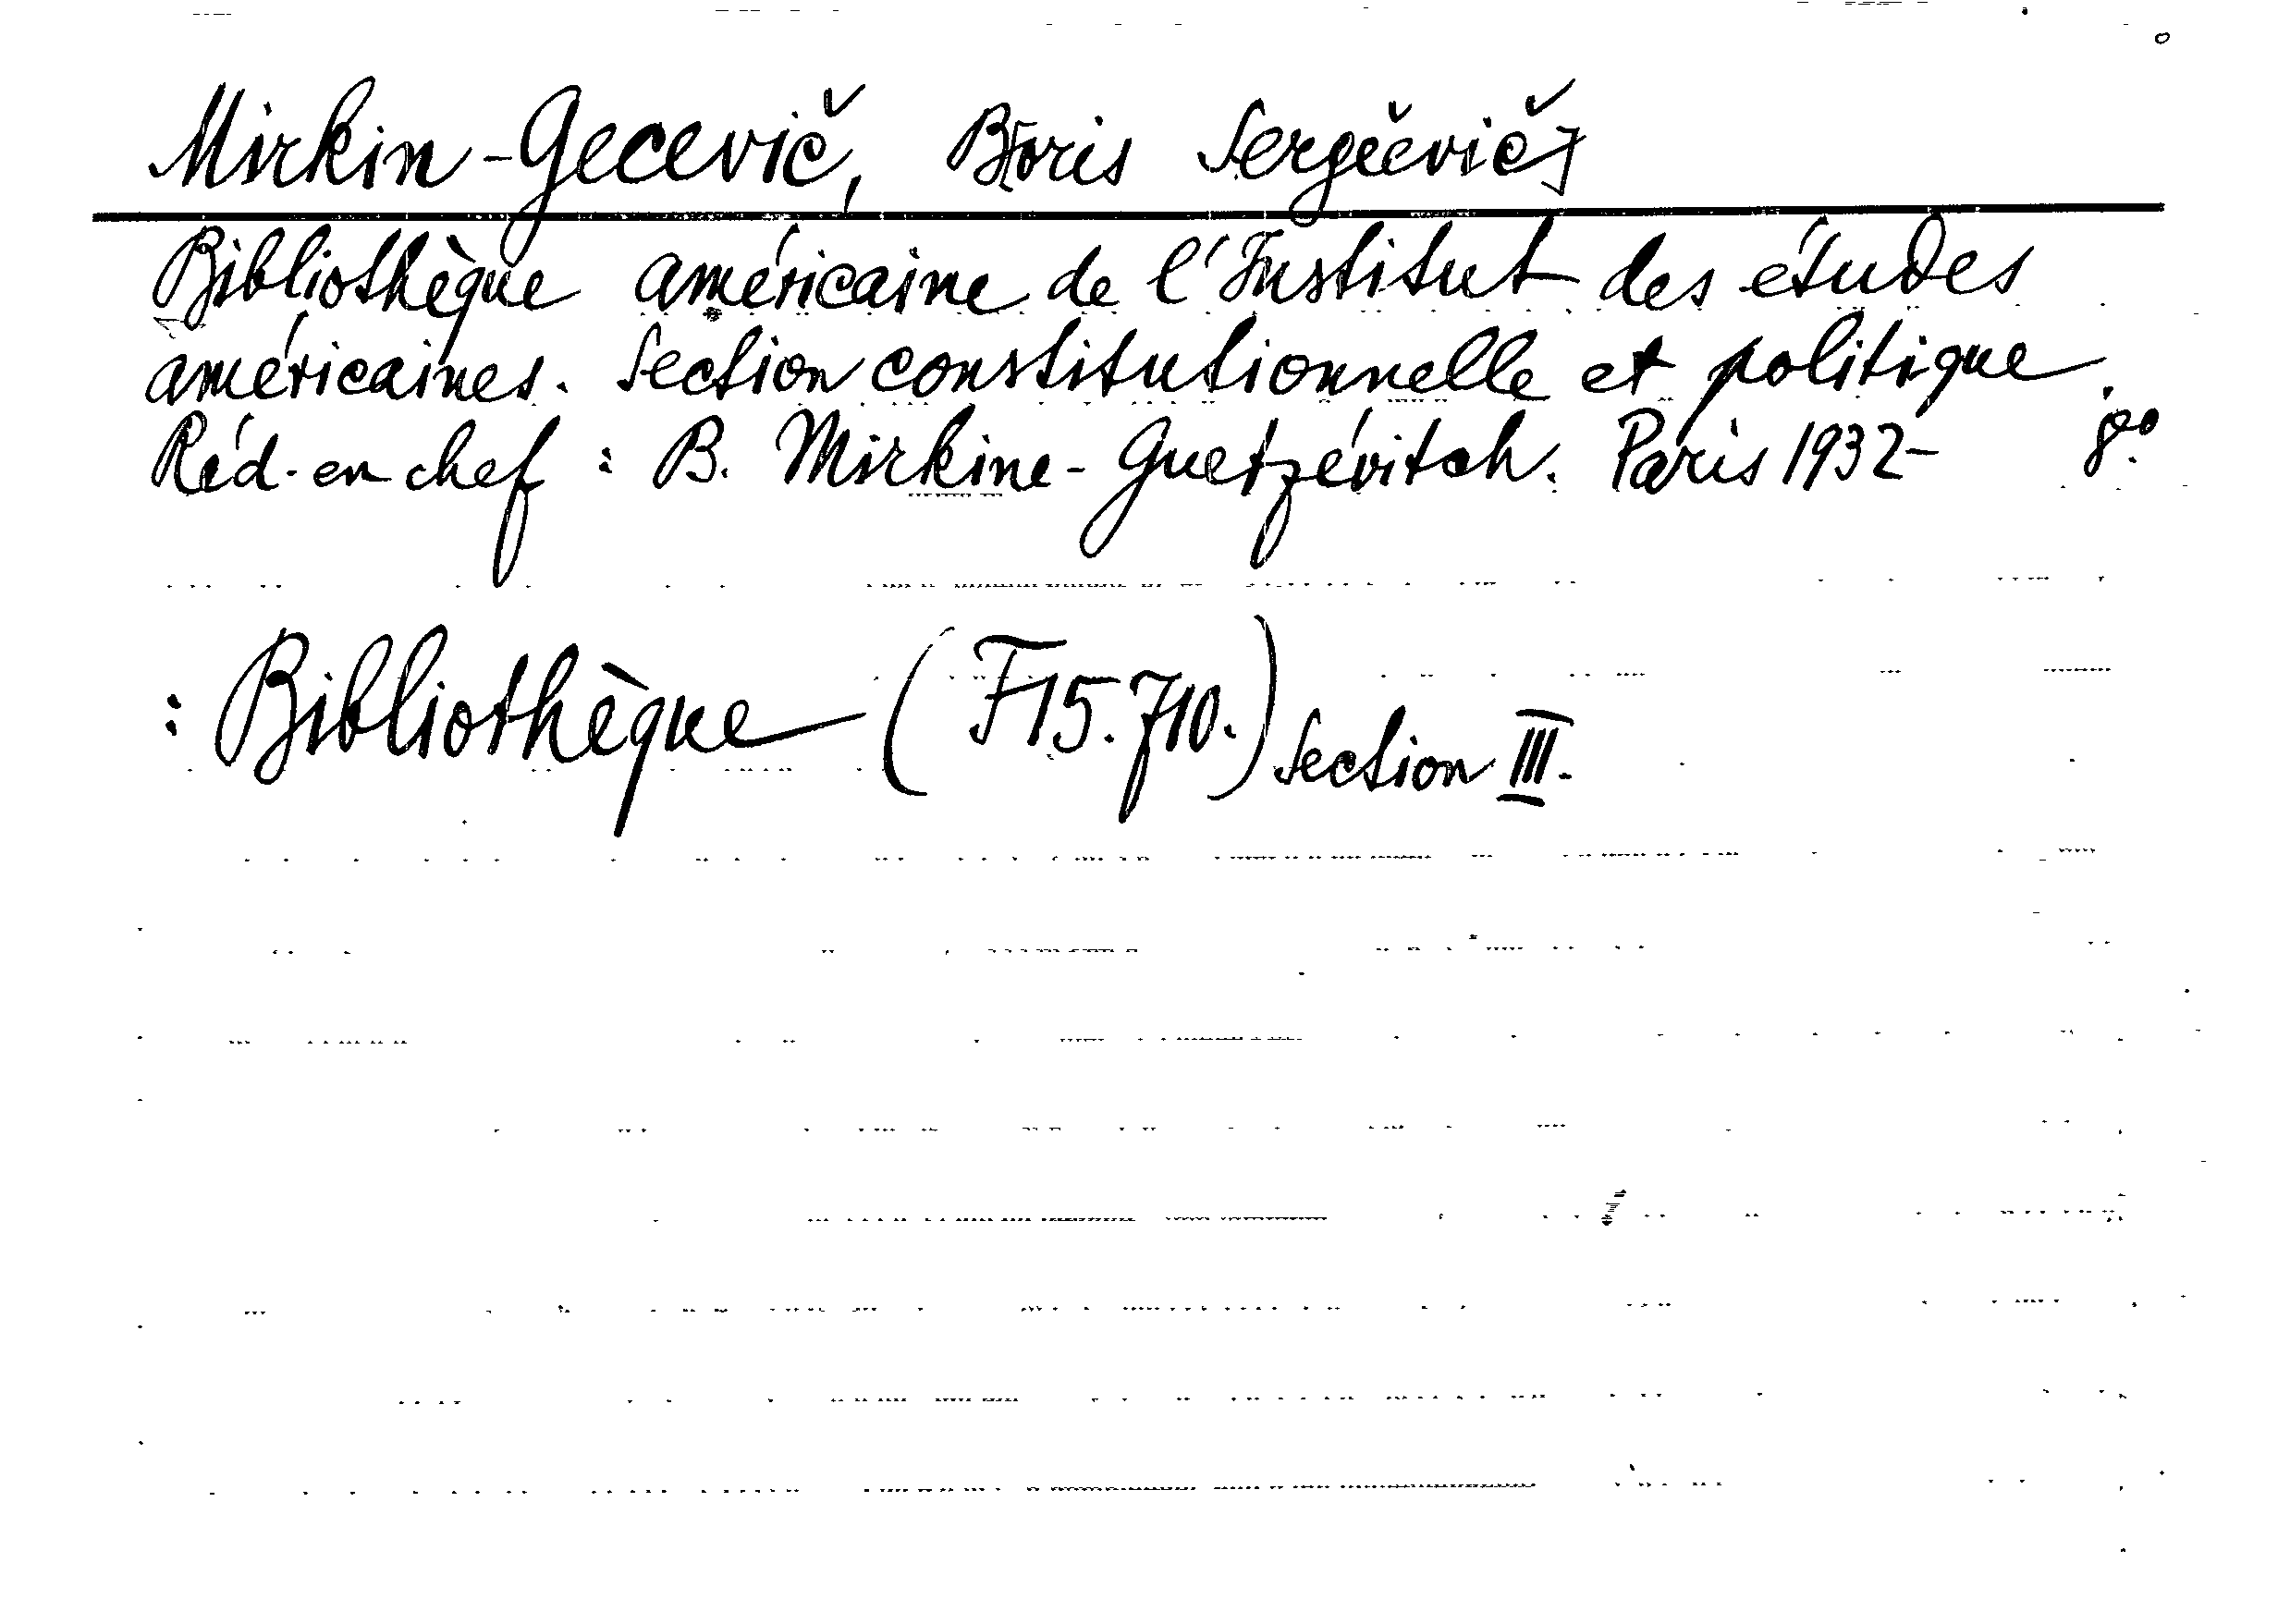 Mirkin-Gecevič, B[oris Sergěevič]
Bibliothèque américaine de l'Institut des études
américaines. Section constitutionnelle et politique.
Réd. en chef : B. Mirkine-Guetzévitch. Paris 1932- 8º.
: Bibliothèque (F15.710.) Section III.